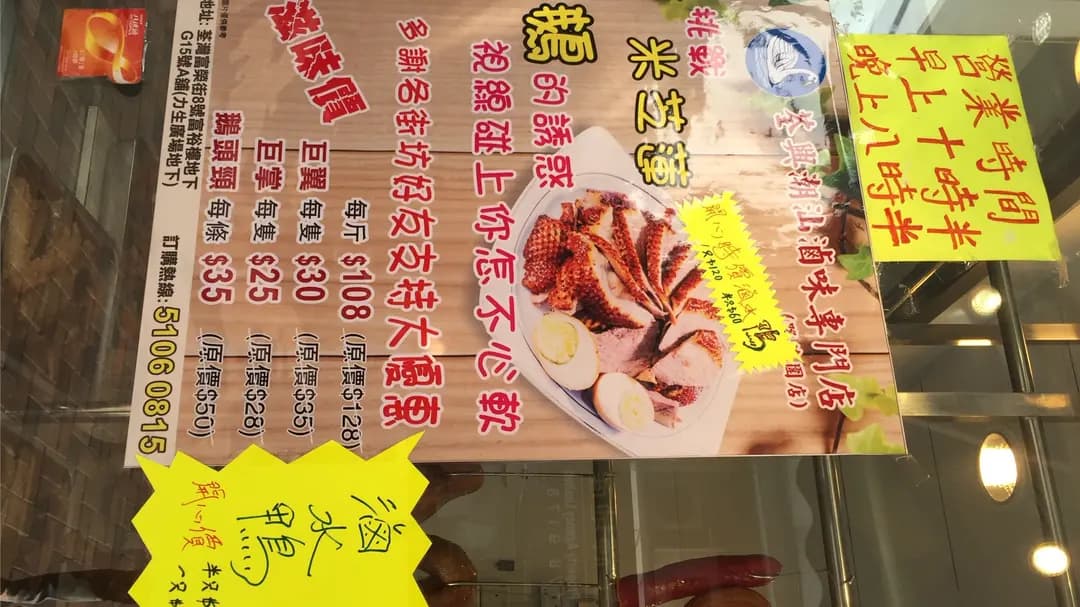 營業時間
早上十時半
晚上八時半
荃興潮汕滷味專門店
挑戰
米芝蓮
鵝的誘惑
視線碰上你怎不心軟
多謝各街坊好友支持大優惠
滋味價
每斤 $108 (原價$128)
巨翼 每隻 $30 (原價$35)
巨掌 每隻 $25 (原價$28)
鵝頭頸 每條 $35 (原價$50)
地址: 荃灣富榮街8號富裕樓地下
G15號A舖(力生廣場地下)
訂購熱線: 5106 0815
開心特價滷水鴨
1只$120 半只$60
滷水鴨
開心價
半只
一只